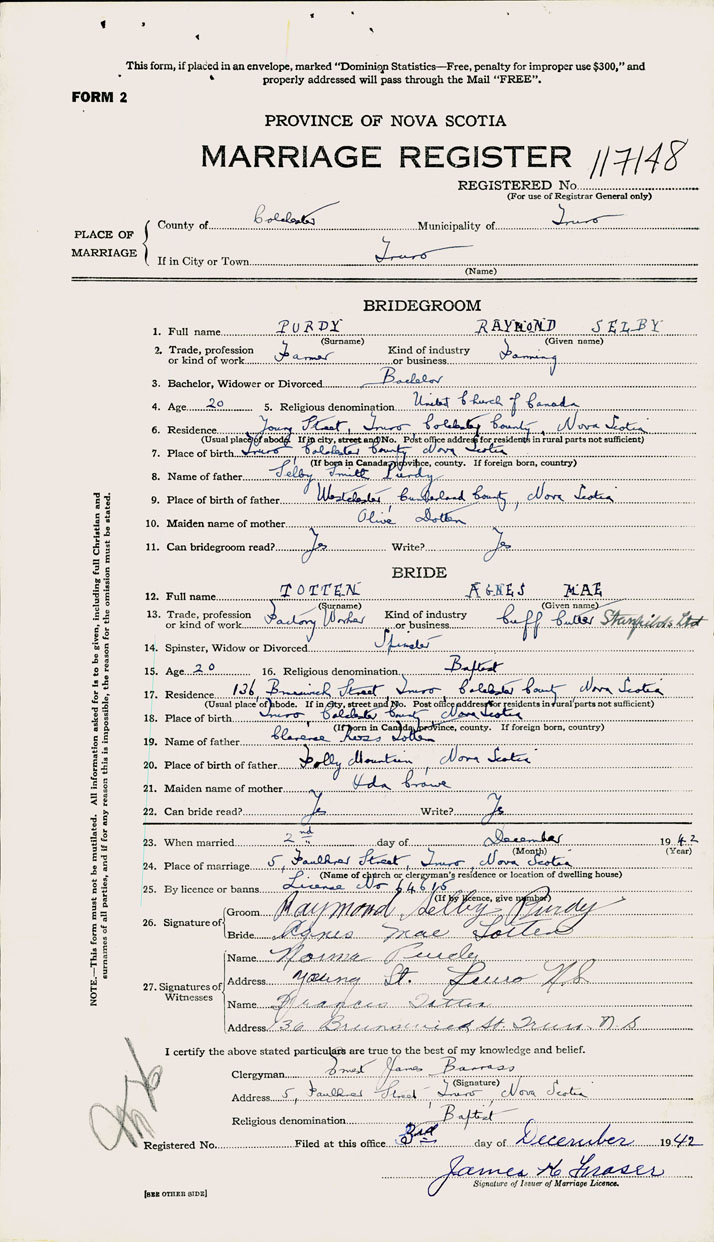 This form, if placed in an envelope, marked "Dominion Statistics—Free, penalty for improper use $300," and
properly addressed will pass through the Mail "FREE".
FORM 2
PROVINCE OF NOVA SCOTIA
MARRIAGE REGISTER 117148
REGISTERED No.
(For use of Registrar General only)
PLACE OF MARRIAGE
County of Colchester Municipality of Truro
If in City or Town Truro
(Name)
BRIDEGROOM
1. Full name PURDY RAYMOND SELBY
(Surname) (Given name)
2. Trade, profession or kind of work Farmer Kind of industry or business Farming
3. Bachelor, Widower or Divorced Bachelor
4. Age 20 5. Religious denomination United Church of Canada
6. Residence Young Street, Truro Colchester County, Nova Scotia
(Usual place of abode. If in city, street and No. Post office address for residents in rural parts not sufficient)
7. Place of birth Truro Colchester County Nova Scotia
(If born in Canada, province, county. If foreign born, country)
8. Name of father Selby Smith Purdy
9. Place of birth of father Westchester, Cumberland County, Nova Scotia
10. Maiden name of mother Olive Totten
11. Can bridegroom read? Yes Write? Yes
BRIDE
12. Full name TOTTEN AGNES MAE
(Surname) (Given name)
13. Trade, profession or kind of work Factory Worker Kind of industry or business Cuff Cutter Stanfields Ltd
14. Spinster, Widow or Divorced Spinster
15. Age 20 16. Religious denomination Baptist
17. Residence 136, Brunswick Street, Truro, Colchester County Nova Scotia
(Usual place of abode. If in city, street and No. Post office address for residents in rural parts not sufficient)
18. Place of birth Truro, Colchester County Nova Scotia
(If born in Canada, province, county. If foreign born, country)
19. Name of father Clarence Ross Totten
20. Place of birth of father Folly Mountain, Nova Scotia
21. Maiden name of mother Ada Crowe
22. Can bride read? Yes Write? Yes
23. When married 2nd day of December 1942
(Month) (Year)
24. Place of marriage 5, Faulkner Street, Truro, Nova Scotia
(Name of church or clergyman's residence or location of dwelling house)
25. By licence or banns License No 64616
(If by licence, give number)
26. Signature of
Groom Raymond Selby Purdy
Bride Agnes Mae Totten
27. Signatures of Witnesses
Name Norma Purdy
Address Young St. Truro N.S
Name Francis Totten
Address 136 Brunswick St. Truro. N.S
I certify the above stated particulars are true to the best of my knowledge and belief.
Clergyman Ernest James Barrass
(Signature)
Address 5, Faulkner Street, Truro, Nova Scotia
Religious denomination Baptist
Registered No. Filed at this office 3rd day of December 1942
James H Fraser
Signature of Issuer of Marriage Licence.
[SEE OTHER SIDE]
NOTE.—This form must not be mutilated. All information asked for is to be given, including full Christian and
surnames of all parties, and if for any reason this is impossible, the reason for the omission must be stated.